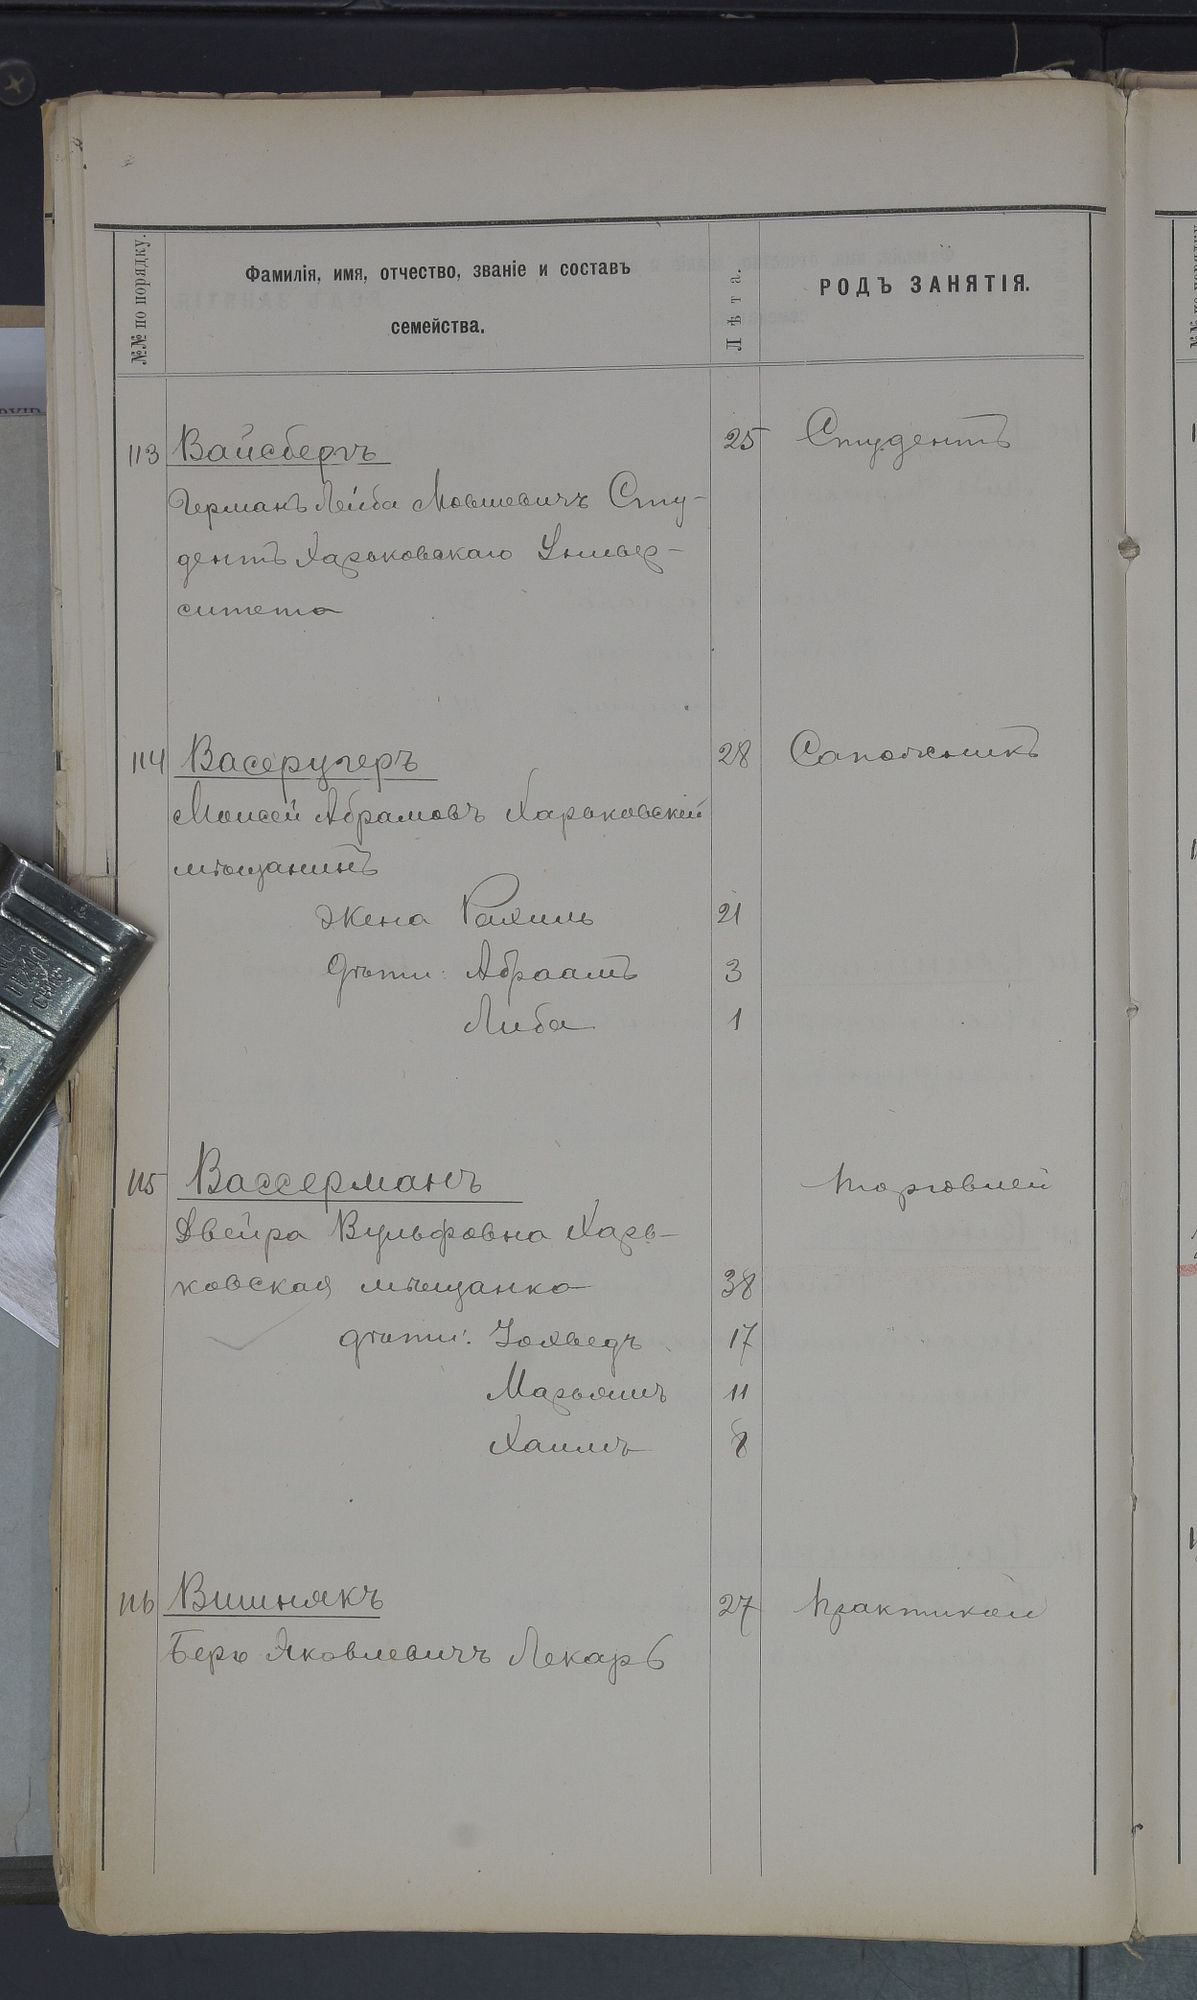 №№ по порядку.
Фамилія, имя, отчество, званіе и составъ
семейства.
Лѣта.
РОДЪ ЗАНЯТІЯ.
113 Вайсбергъ 25 Студентъ
Германъ Лейба Мовшевичъ Сту-
дентъ Харьковскаго Универ-
ситета
114 Васеругеръ 28 Сапожникъ
Моисей Абрамовъ Харьковскій
мѣщанинъ
Жена Рахиль 21
Дѣти: Абраамъ 3
Либа 1
115 Вассерманъ торговлей
Двейра Вульфовна Харь-
ковская мѣщанка 38
дѣти: 17
Марьямъ 11
Хаимъ 8
116 Вишнякъ 27 практикой
Беръ Яковлевичъ Лекарь